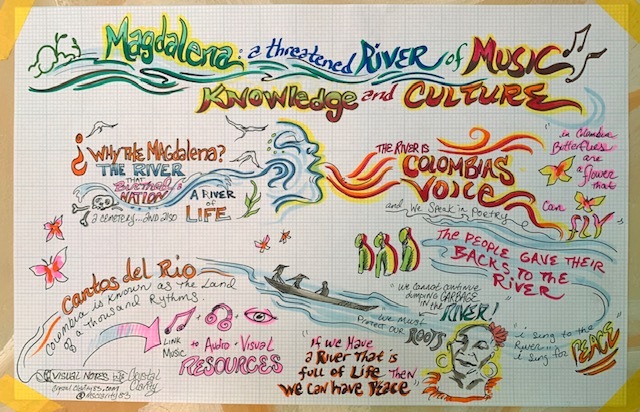 Magdalena: a threatened River of Music
Knowledge and Culture
¿ Why the Magdalena?
The River
that
Birthed a
Nation
a cemetery...and also
A River
of
Life
The River is
Colombias
Voice
and we speak in Poetry
"in Colombia
Butterflies
are
a flower
that
can
Fly"
The People gave their
Backs to the
River
Cantos del Rio
Colombia is known as the Land
of a Thousand Rythms.
Link
Music
to Audio-Visual
Resources
"we cannot continue
dumping Garbage
in the River!
we must
Protect our Roots"
"If we Have
a River that is
full of Life then
we can have Peace"
"i sing to the
River
i sing for
Peace"
Visual Notes by Crystal
Clarity